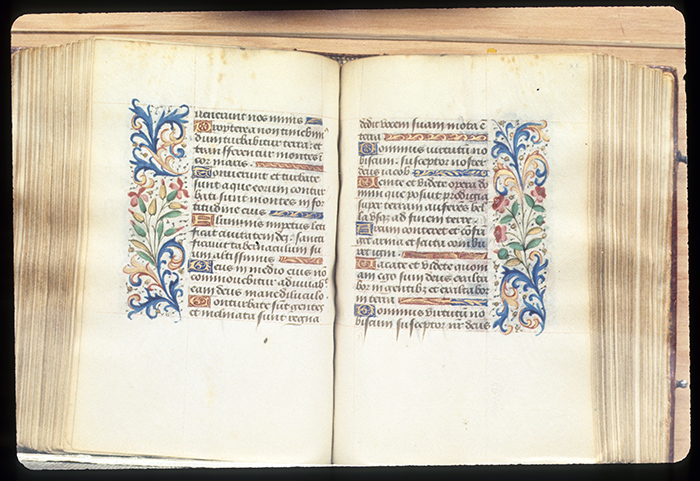 uenerunt nos nimis
Propterea non timebim
dum turbabitur terra: et
transferentur montes in
cor maris
Sonuerunt et turbate
sunt aque eorum contur
bati sunt montes in for
titudine eius
Fluminis impetus leti
ficat ciuitatem dei: sancti
ficauit tabernaculum su
um altissimus
Deus in medio eius no
commouebitur adiuuab
eam deus mane diluculo
Conturbate sut gentes
et inclinata sunt regna
dedit vocem suam mota e
terra
Dominus uirtutu no
biscum: susceptor noster
deus iacob
Uenite et videte opera do
mini que posuit prodigia
super terram auferens bel
la usqz ad finem terre
Arcum conteret et cofri
get arma et scuta combu
ret igni
Uacate et videte quoni
am ego sum deus exalta
bor in gentibz et exaltabor
in terra
Dominus uirtutu no
biscum susceptor nr deus